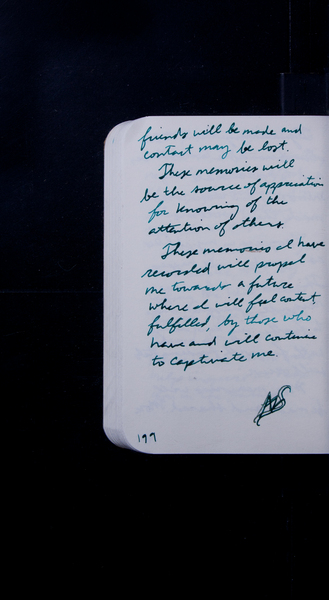 friends will be made and
contact may be lost.
These memories will
be the source of appreciation
for knowing of the
attention of others.
These memories I have
recorded will propel
me towards a future
where I will feel content,
fulfilled, by those who
have and will continue
to captivate me.
177